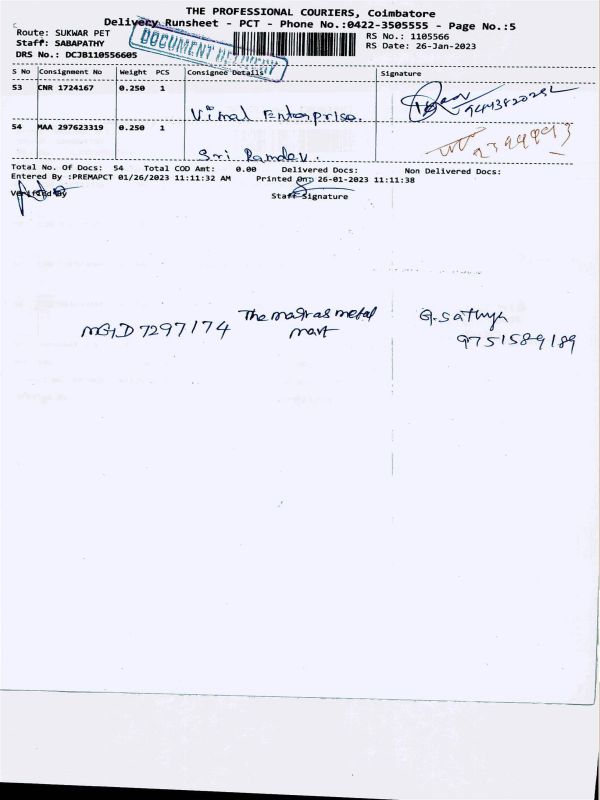 THE PROFESSIONAL COURIERS, Coimbatore
Delivery Runsheet - PCT - Phone No.:0422-3505555 - Page No.:5
Route: SUKWAR PET
RS No.: 1105566
Staff: SABAPATHY
RS Date: 26-Jan-2023
DRS No.: DCJB110556605
DOCUMENT
S No Consignment No Weight PCS Consignee Details Signature
53 CNR 1724167 0.250 1
Vimal Enterprise.
54 MAA 297623319 0.250 1
Sri Ramdev.
Total No. Of Docs: 54 Total COD Amt: 0.00 Delivered Docs: Non Delivered Docs:
Entered By :PREMAPCT 01/26/2023 11:11:32 AM Printed On: 26-01-2023 11:11:38
Verified By
Staff Signature
7297174 The madras metal mart G. Sathya
9751589189